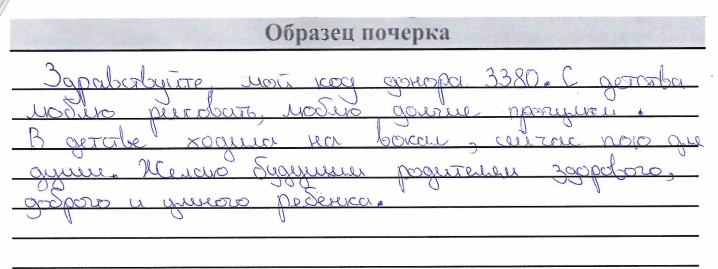 Образец почерка
Здравствуйте, мой код донора 3380. С детства
люблю рисовать, люблю долгие прогулки.
В детстве ходила на вокал, сейчас пою для
души. Желаю будущим родителям здорового,
доброго и умного ребёнка.